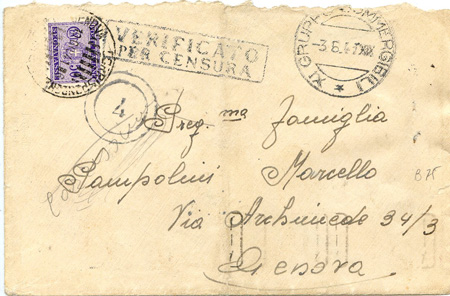 VERIFICATO
PER CENSURA
XI GRUPPO SOMMERGIBILI
4
Preg.ma Famiglia
Pampolini Marcello
Via Archimede 34/3
Genova
B75